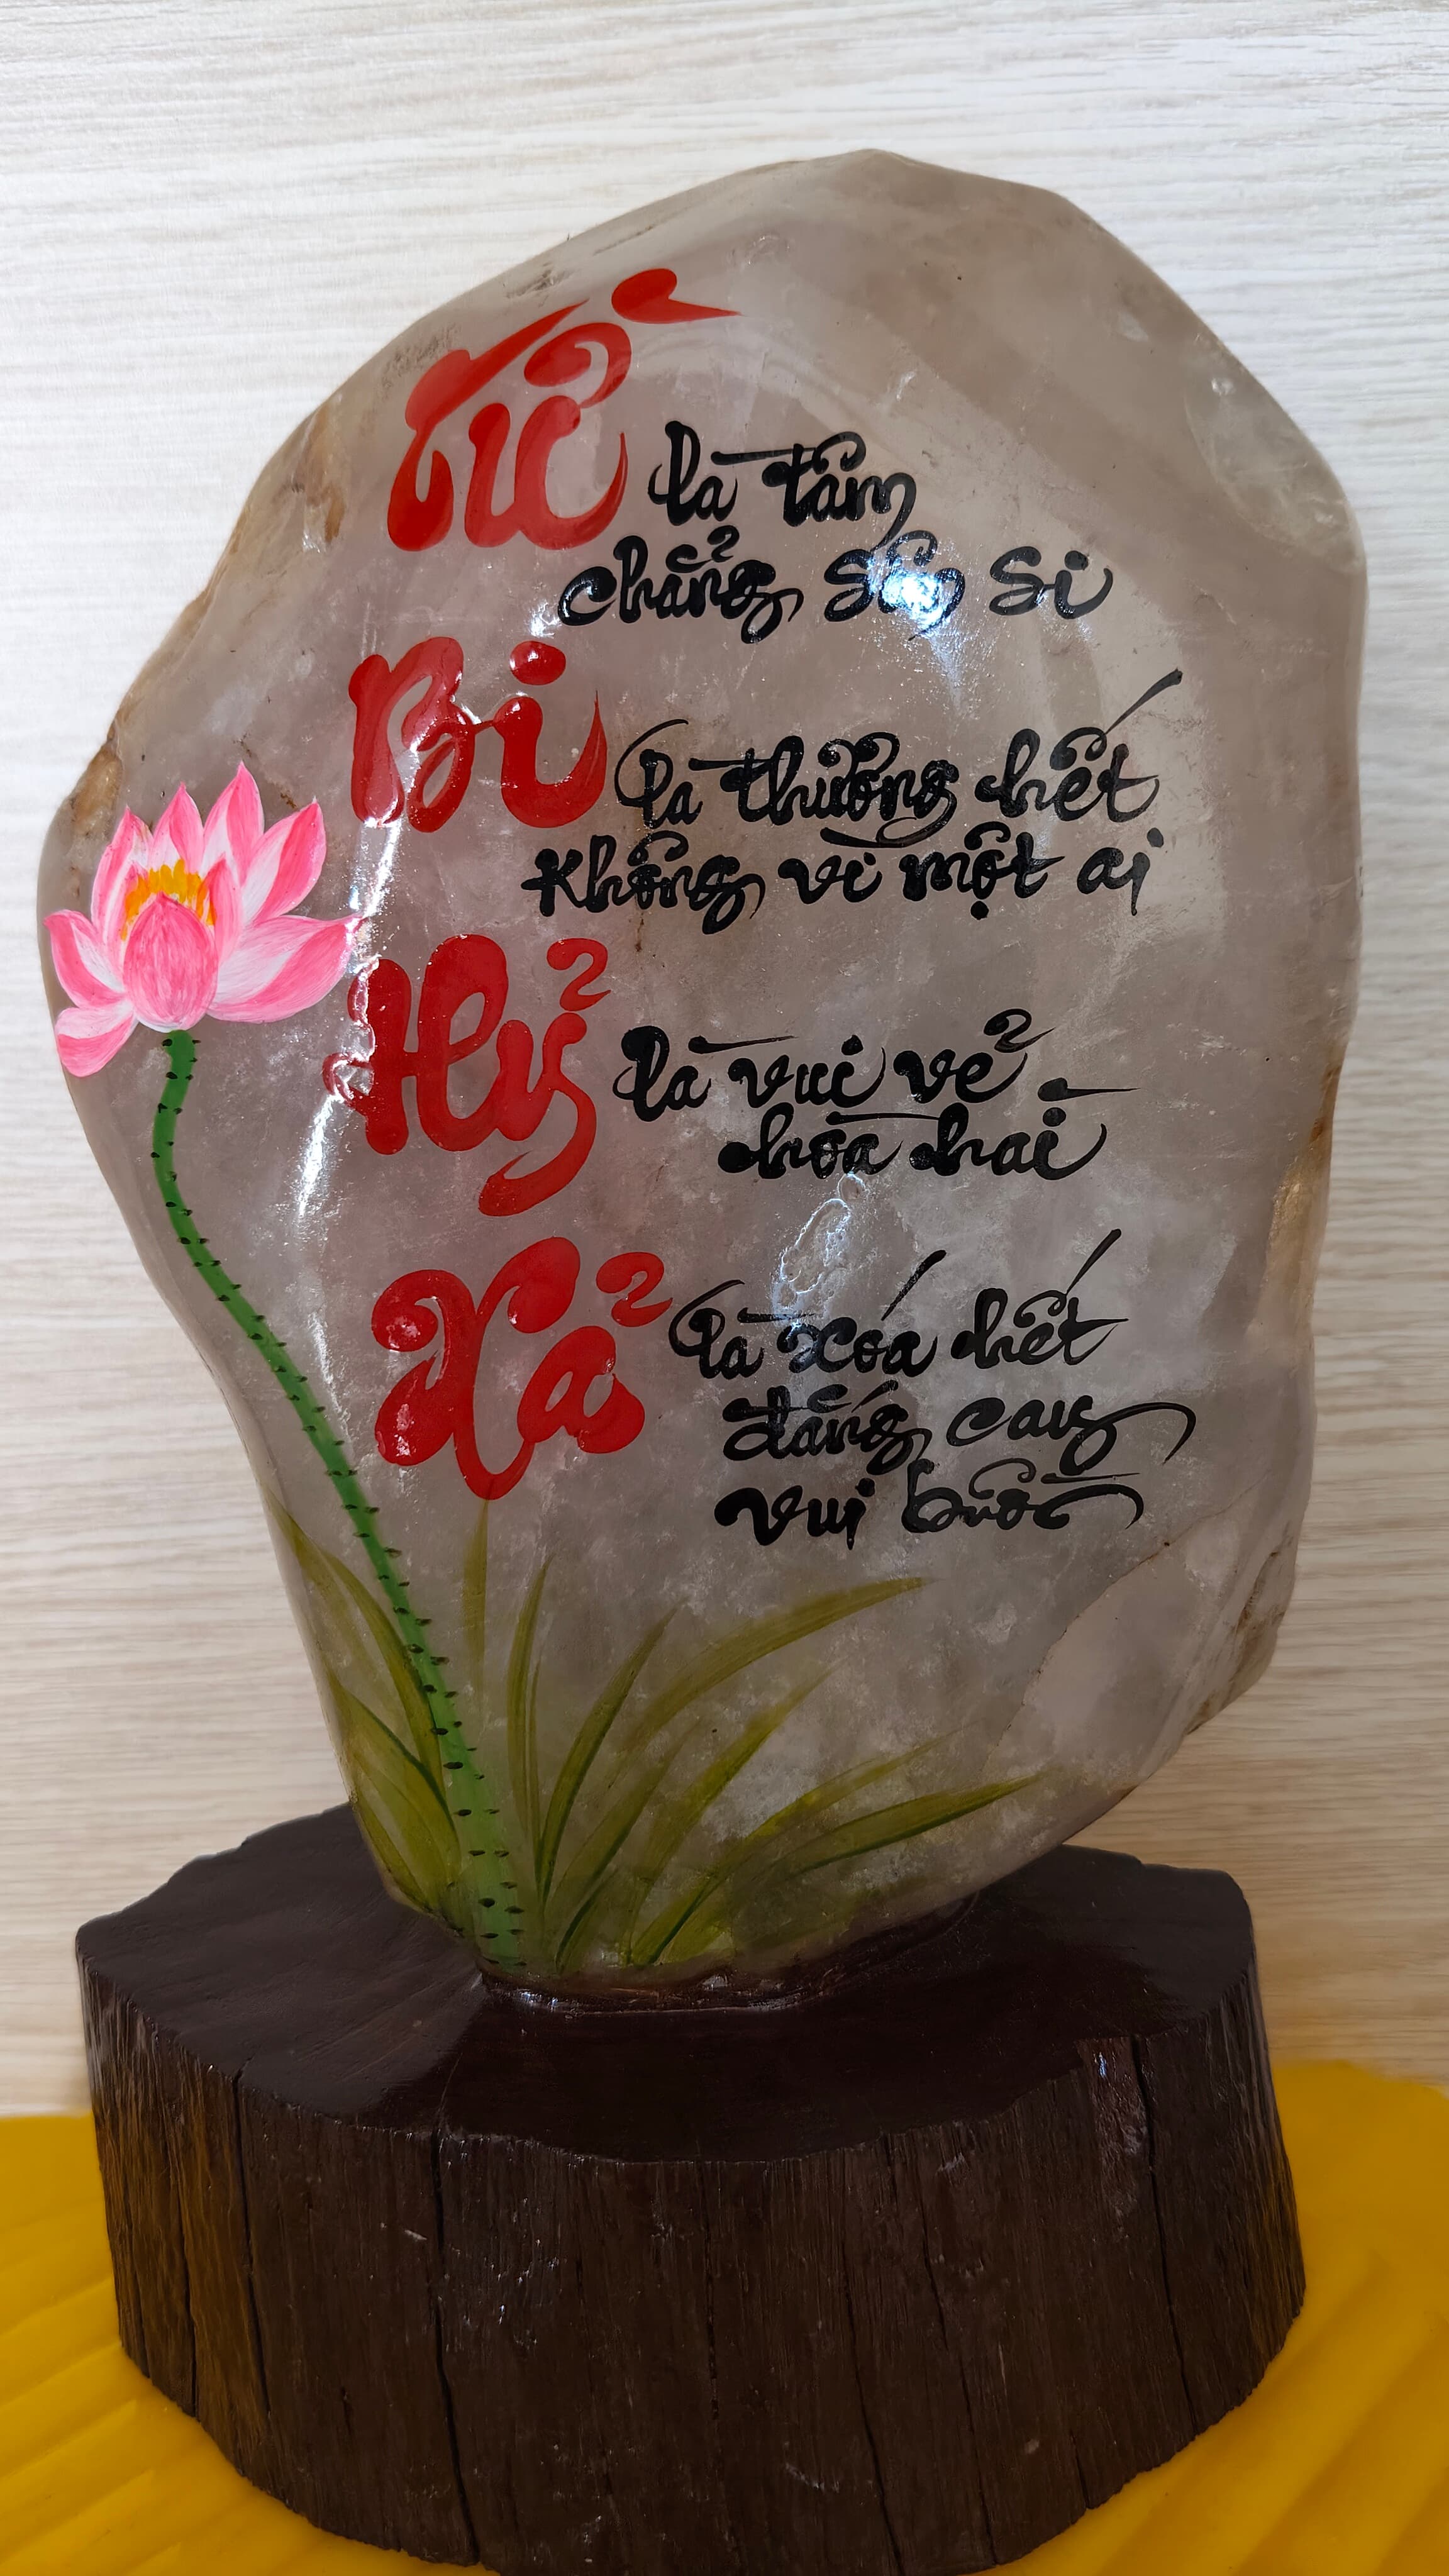 Từ là tâm
chẳng sân si
Bi là thương hết
Không vì một ai
Hỷ là vui vẻ
hòa hài
Xả là xóa hết
đắng cay
vui buồn